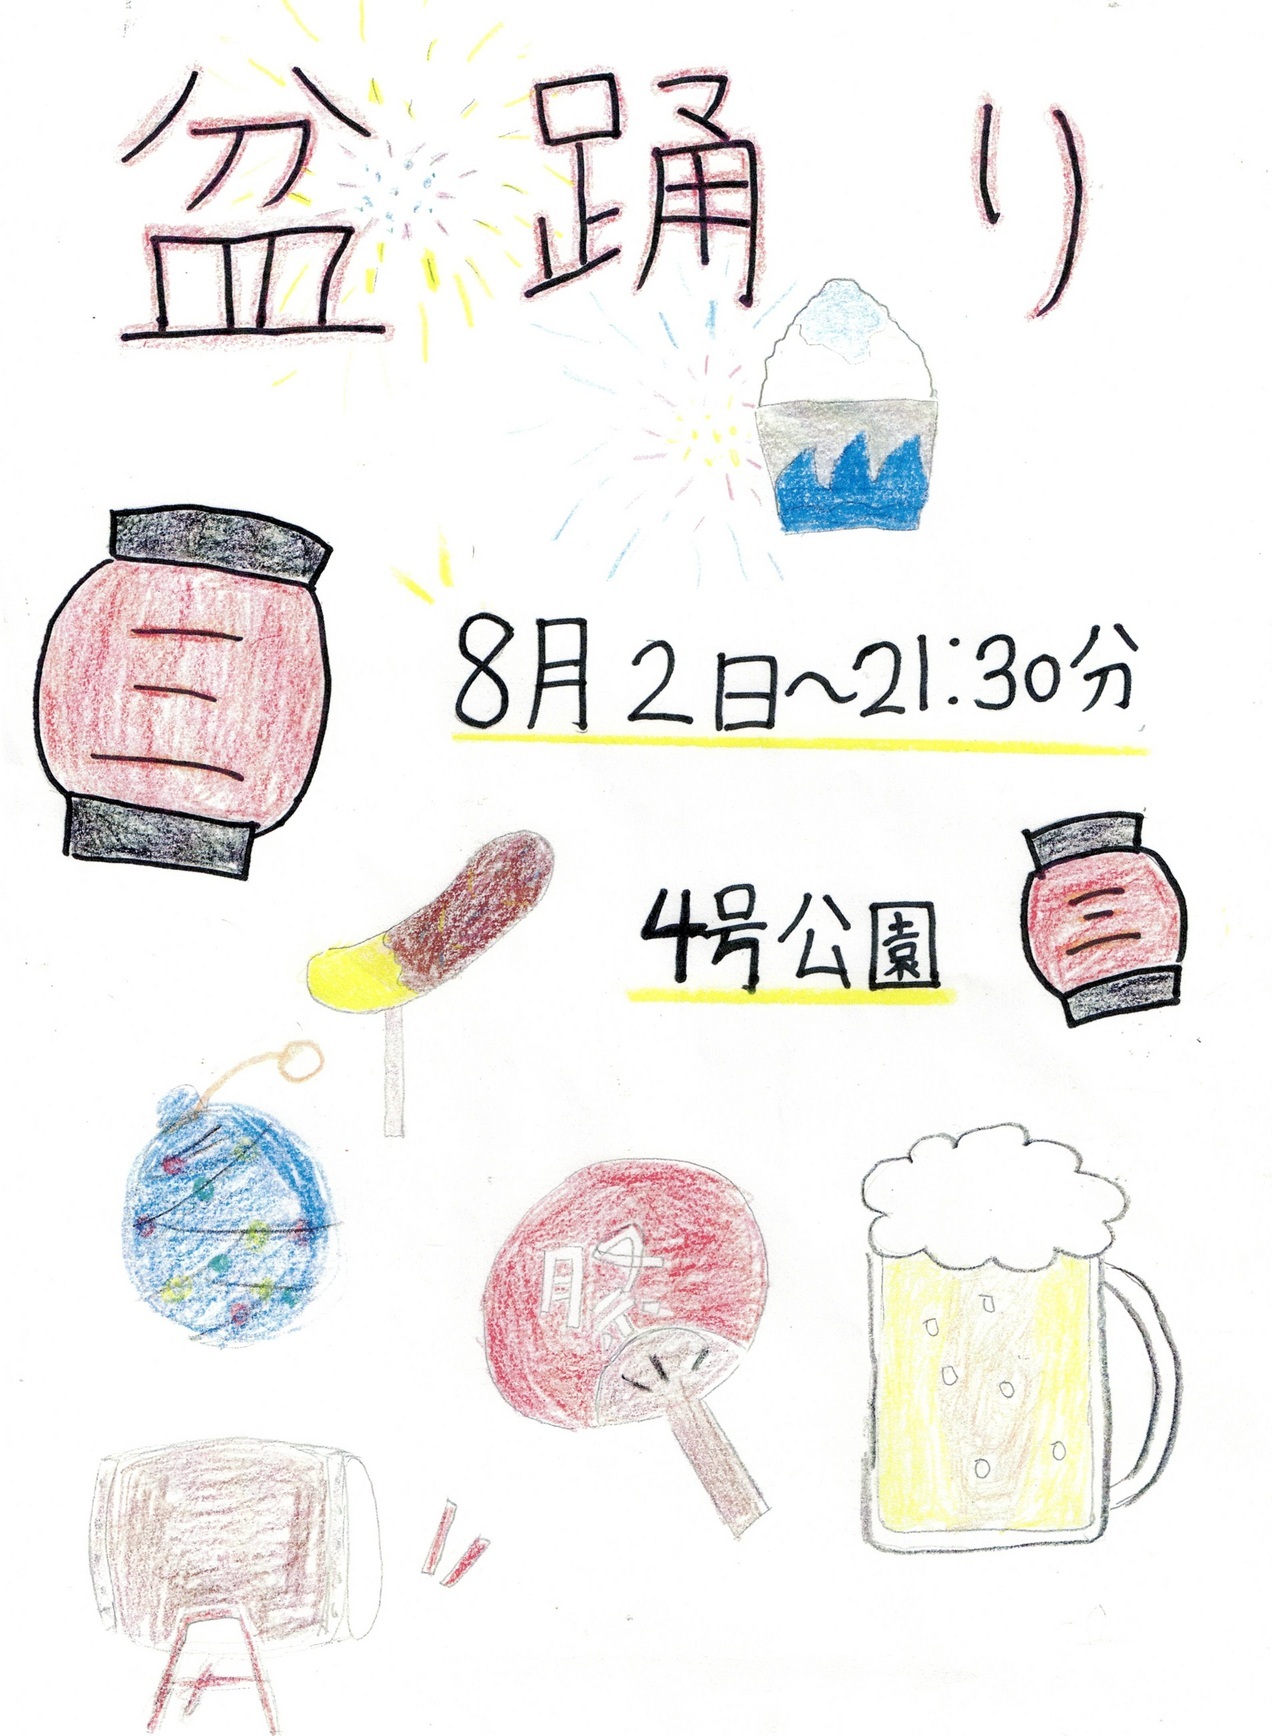 盆踊り
8月2日～21:30分
4号公園